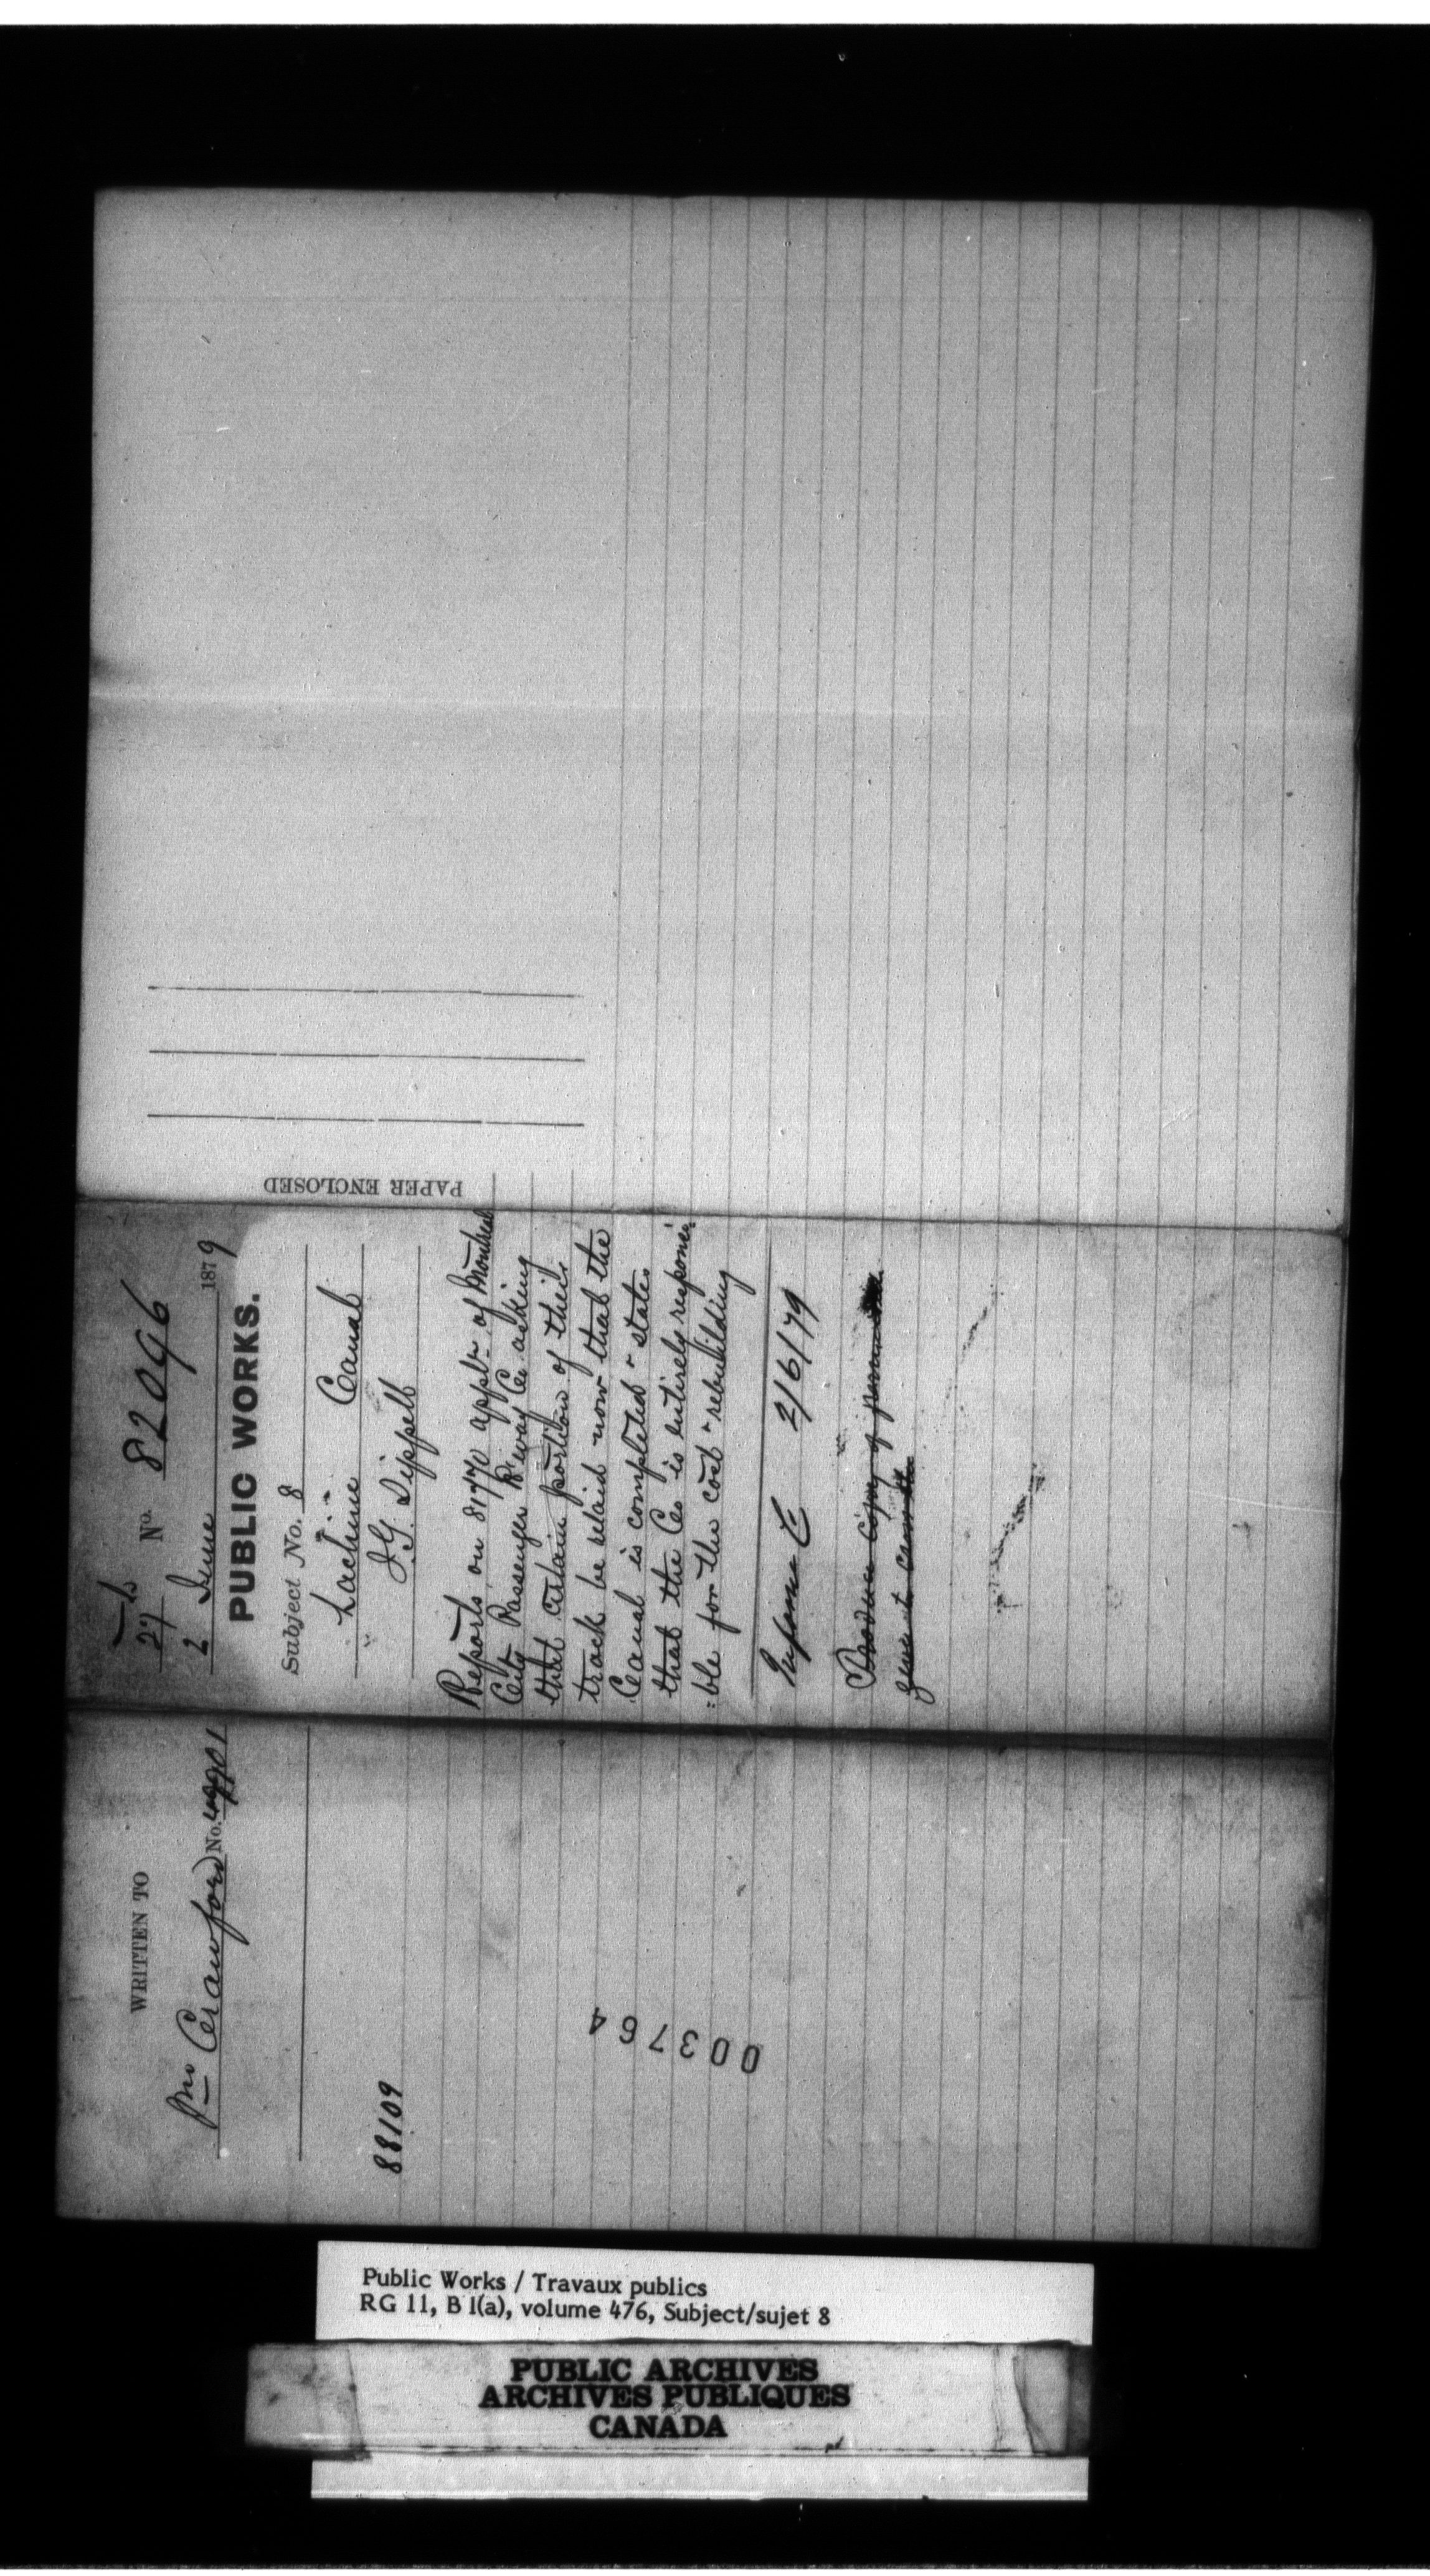 27 No. 82096
2 June 1879
PUBLIC WORKS.
Subject No. 8
Lachine Canal
J.G. Sippell
Reports on 81770 appln of Montreal
City Passenger R'way Co asking
that certain portion of their
track be relaid now that the
Canal is completed & states
that the Co is entirely responsi-
:ble for the cost & rebuilding
Inform C 2/6/79
Produce Copy of
PAPER ENCLOSED
WRITTEN TO
Mr Crawford No.
88109
003764
Public Works / Travaux publics
RG 11, B I(a), volume 476, Subject/sujet 8
PUBLIC ARCHIVES
ARCHIVES PUBLIQUES
CANADA